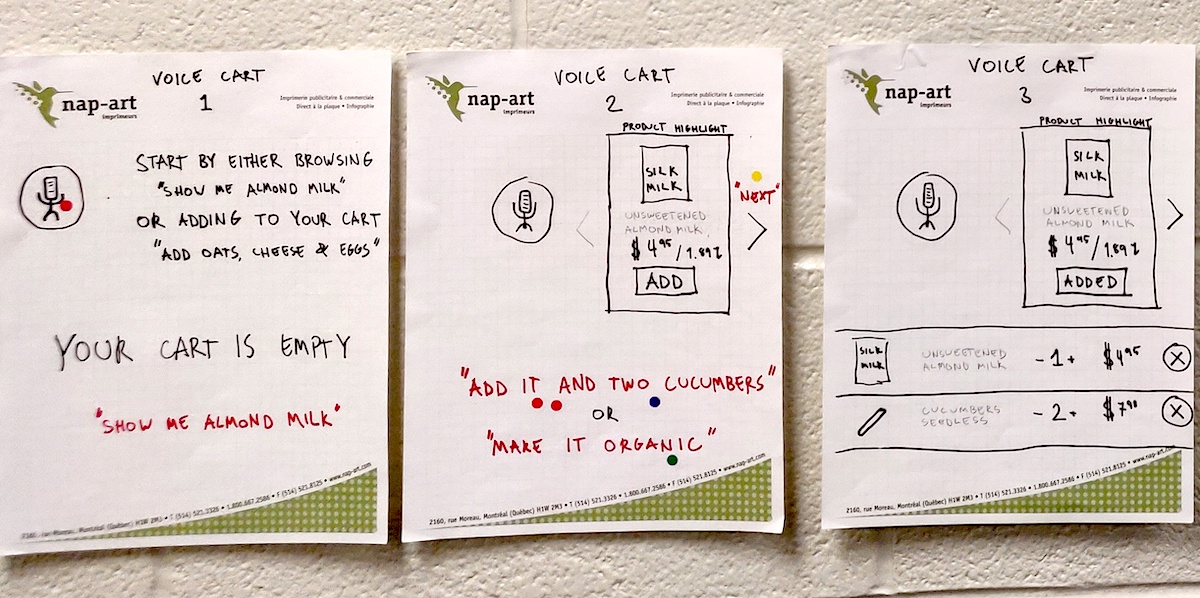 VOICE CART
1
nap-art
imprimeurs
Imprimerie publicitaire & commerciale
Direct à la plaque • Infographie
START BY EITHER BROWSING
"SHOW ME ALMOND MILK"
OR ADDING TO YOUR CART
"ADD OATS, CHEESE & EGGS"
YOUR CART IS EMPTY
"SHOW ME ALMOND MILK"
2160, rue Moreau, Montréal (Québec) H1W 2M3 • T (514) 521.3326 • 1.800.667.2586 • F (514) 521.8125 • www.nap-art.com
VOICE CART
2
nap-art
imprimeurs
Imprimerie publicitaire & commerciale
Direct à la plaque • Infographie
PRODUCT HIGHLIGHT
SILK
MILK
"NEXT"
UNSWEETENED
ALMOND MILK
$4.95/1.89L
ADD
"ADD IT AND TWO CUCUMBERS"
OR
"MAKE IT ORGANIC"
2160, rue Moreau, Montréal (Québec) H1W 2M3 • T (514) 521.3326 • 1.800.667.2586 • F (514) 521.8125 • www.nap-art.com
VOICE CART
3
nap-art
imprimeurs
Imprimerie publicitaire & commerciale
Direct à la plaque • Infographie
PRODUCT HIGHLIGHT
SILK
MILK
UNSWEETENED
ALMOND MILK
$4.95/1.89L
ADDED
SILK
MILK
UNSWEETENED
ALMOND MILK
-1+ $4.95 X
CUCUMBERS
SEEDLESS
-2+ $7.90 X
2160, rue Moreau, Montréal (Québec) H1W 2M3 • T (514) 521.3326 • 1.800.667.2586 • F (514) 521.8125 • www.nap-art.com